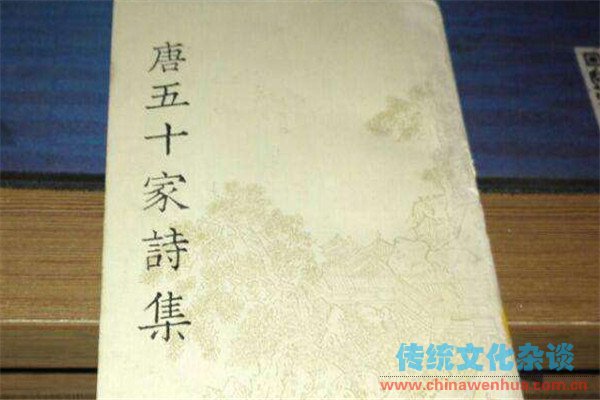 唐五十家詩集
传统文化杂谈
www.chinawenhua.com.cn